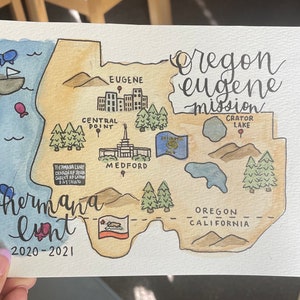 oregon
eugene
mission
EUGENE
CENTRAL
POINT
CRATOR
LAKE
MEDFORD
OREGON
CALIFORNIA
hermana
lunt
2020-2021